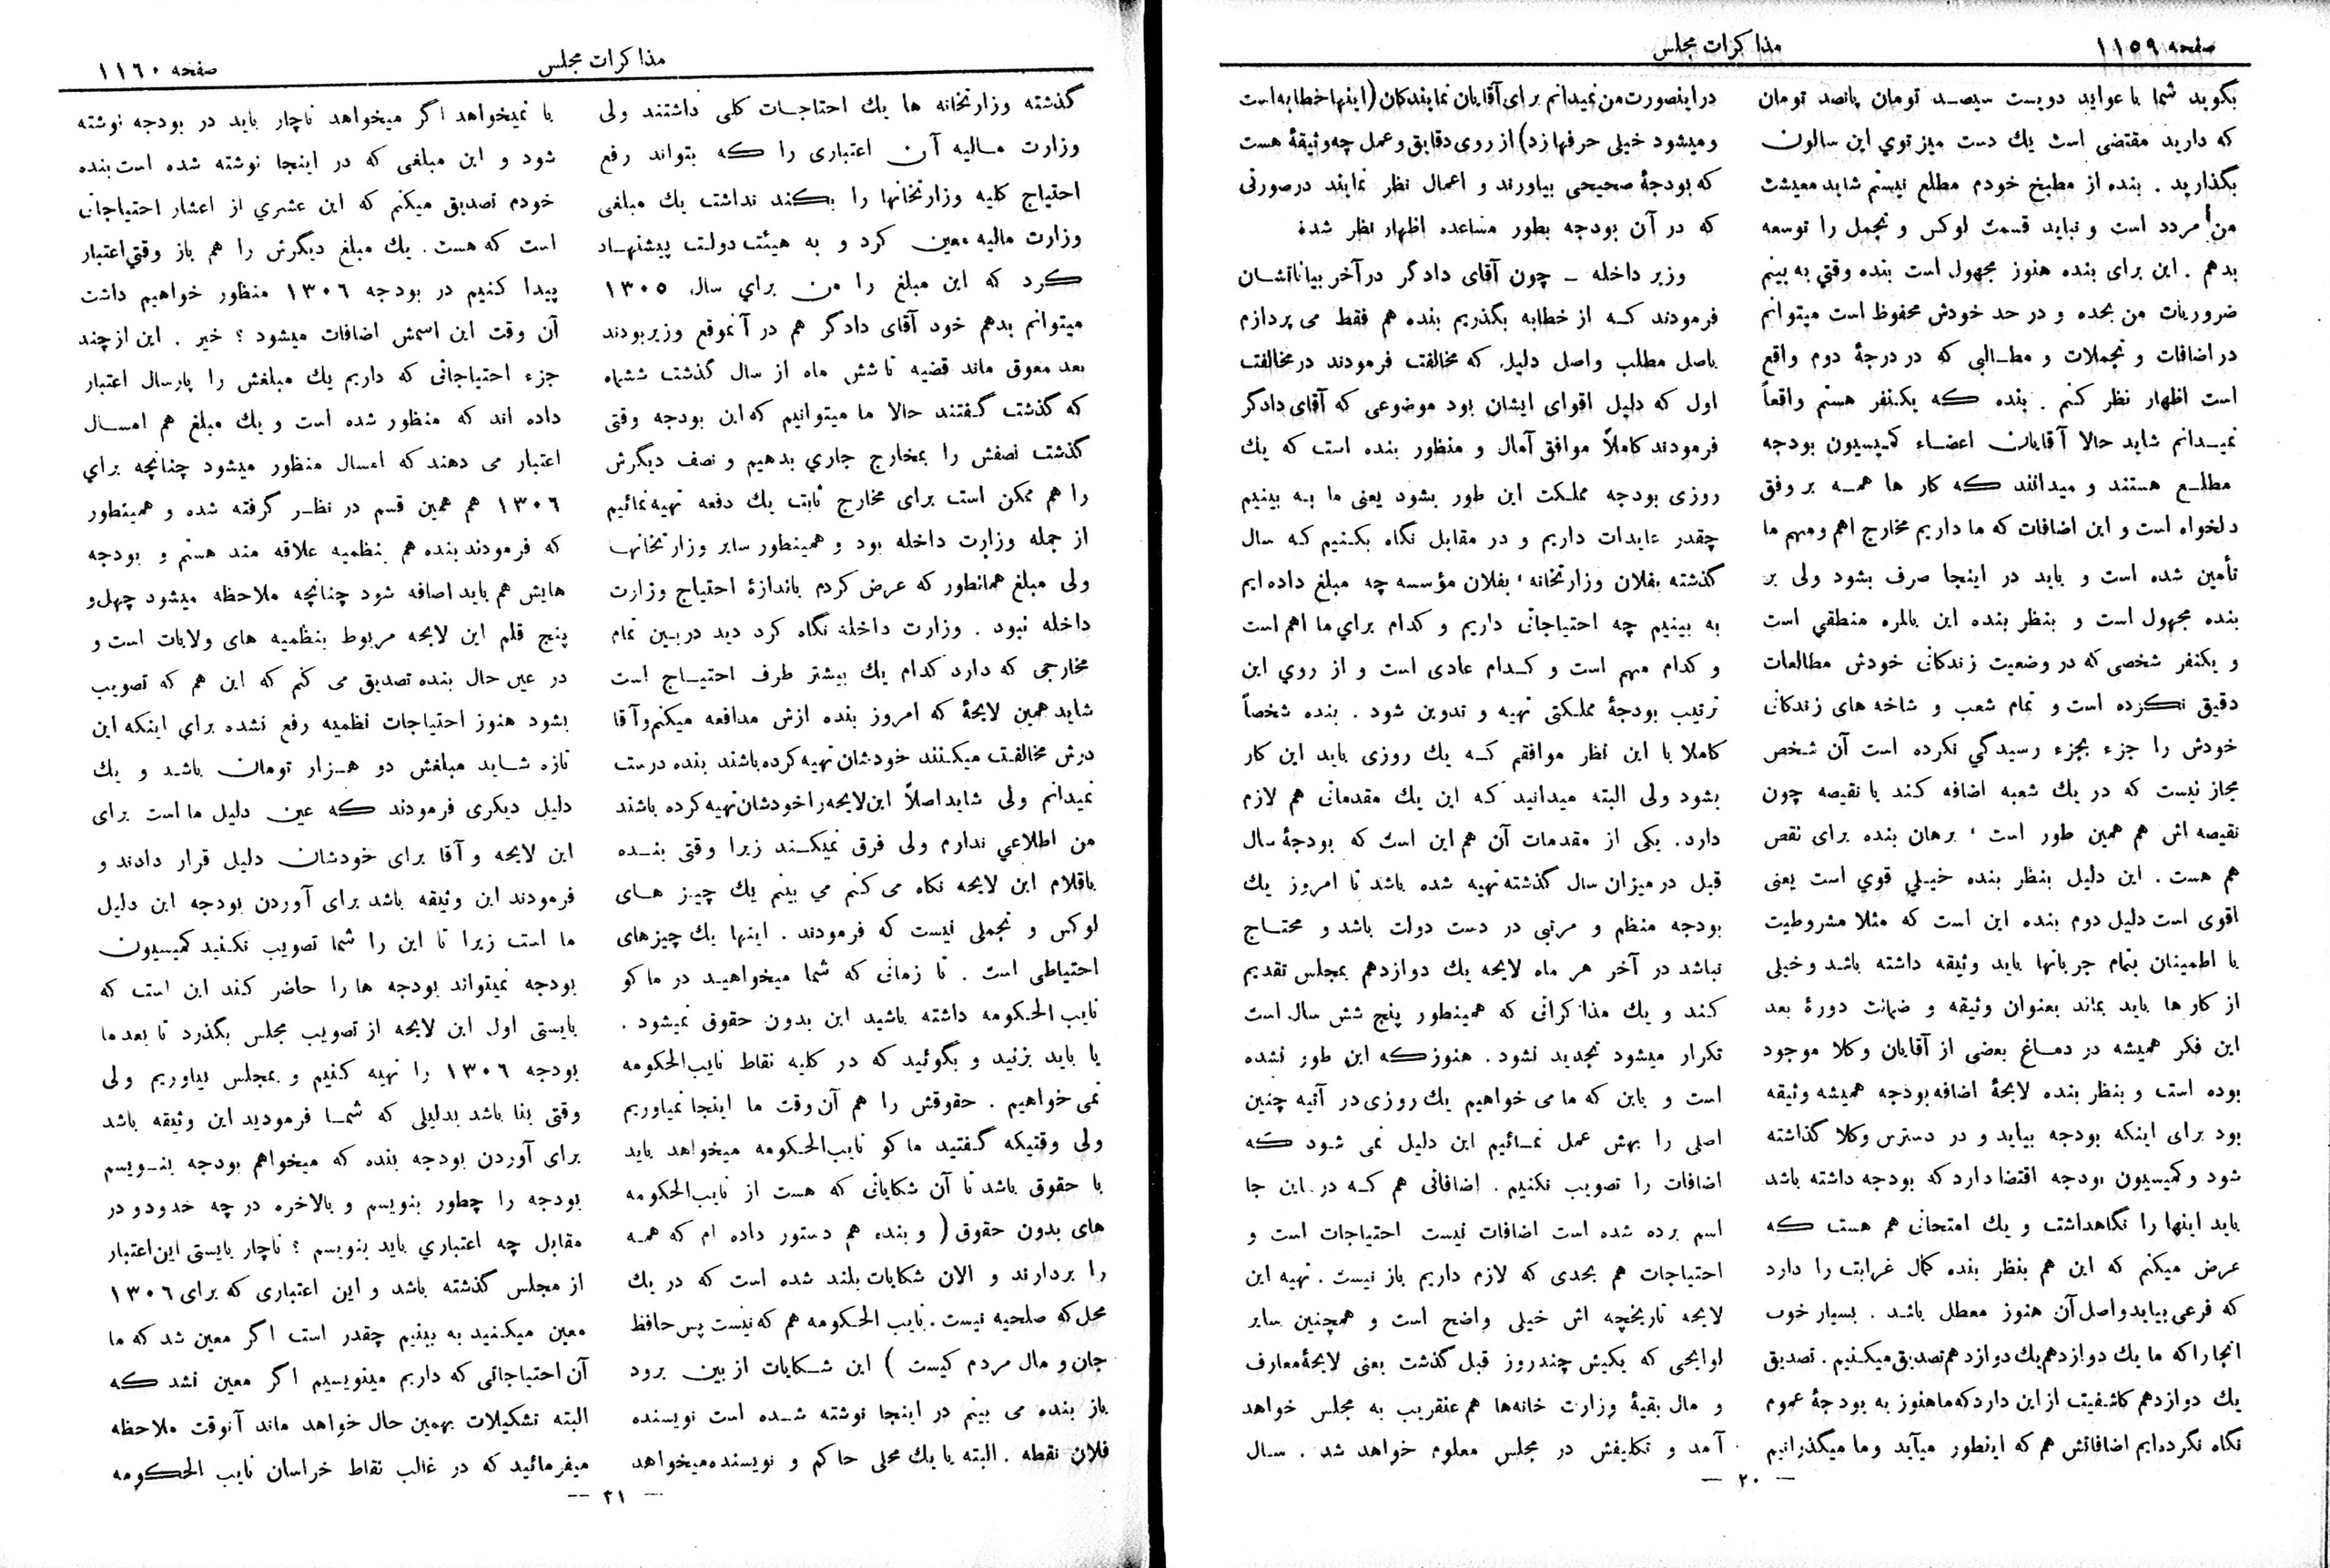 صفحه ١١٥٩
مذاکرات مجلس
بگوید شما با عواید دویست سیصد تومان پانصد تومان
که دارید مقتضی است یك دست میز توي این سالون
بگذارید . بنده از مطبخ خودم مطلع نیستم شاید معیشت
من امردد است و نباید قسمت لوکس و تجمل را توسعه
بدهم . این برای بنده هنوز مجهول است بنده وقتي به بینم
ضروریات من بحده و در حد خودش محفوظ است میتوانم
در اضافات و تجملات و مطالبی که در درجهٔ دوم واقع
است اظهار نظر کنم . بنده که یکنفر هستم واقعاً
نمیدانم شاید حالا آقایان اعضاء کمیسیون بودجه
مطلع هستند و میدانند که کار ها همه بر وفق
دلخواه است و این اضافات که ما داریم مخارج اهم و مهم ما
تأمین شده است و باید در اینجا صرف بشود ولی بر
بنده مجهول است و بنظر بنده این بالمره منطقي است
و یکنفر شخصی که در وضعیت زندکانی خودش مطالعات
دقیق نکرده است و تمام شعب و شاخه های زندکانی
خودش را جزء بجزء رسیدگي نکرده است آن شخص
مجاز نیست که در یك شعبه اضافه کند یا نقیصه چون
نقیصه اش هم همین طور است ، برهان بنده برای نقص
هم هست . این دلیل بنظر بنده خیلي قوي است یعنی
اقوی است دلیل دوم بنده این است که مثلا مشروطیت
با اطمینان بتمام جریانها باید وثیقه داشته باشد و خیلی
از کار ها باید بماند بعنوان وثیقه و ضمانت دورهٔ بعد
این فکر همیشه در دماغ بعضی از آقایان وکلا موجود
بوده است و بنظر بنده لایحهٔ اضافه بودجه همیشه وثیقه
بود برای اینکه بودجه بیاید و در دسترس وکلا گذاشته
شود و کمیسیون بودجه اقتضا دارد که بودجه داشته باشد
باید اینها را نگاهداشت و یك امتحانی هم هست که
عرض میکنم که این هم بنظر بنده کمال غرابت را دارد
که فرعی بیاید واصل آن هنوز معطل باشد . بسیار خوب
انجا را که ما یك دوازدهم یك دوازدهم تصدیق میکنیم . تصدیق
یك دوازدهم کاشفیت از این دارد که ما هنوز به بودجهٔ عموم
نگاه نکرده‌ایم اضافاتش هم که اینطور میآید و ما میگذرانیم
در اینصورت من نمیدانم برای آقایان نمایندکان (اینها خطابه است
و میشود خیلی حرفها زد) از روی دقایق و عمل چه وثیقهٔ هست
که بودجهٔ صحیحی بیاورند و اعمال نظر نمایند در صورتی
که در آن بودجه بطور مساعده اظهار نظر شده
وزیر داخله ـ چون آقای دادگر در آخر بیاناتشان
فرمودند که از خطابه بگذریم بنده هم فقط می پردازم
باصل مطلب واصل دلیل که مخالفت فرمودند در مخالفت
اول که دلیل اقوای ایشان بود موضوعی که آقای دادگر
فرمودند کاملاً موافق آمال و منظور بنده است که یك
روزی بودجه مملکت این طور بشود یعنی ما به بینیم
چقدر عایدات داریم و در مقابل نگاه بکنیم که سال
گذشته بفلان وزارتخانه ، بفلان مؤسسه چه مبلغ داده ایم
به بینیم چه احتیاجاتی داریم و کدام براي ما اهم است
و کدام مهم است و کدام عادی است و از روي این
ترتیب بودجهٔ مملکتی تهیه و تدوین شود . بنده شخصاً
کاملا با این نظر موافقم که یك روزی باید این کار
بشود ولی البته میدانید که این یك مقدماتی هم لازم
دارد. یکی از مقدمات آن هم این است که بودجهٔ سال
قبل در میزان سال گذشته تهیه شده باشد تا امروز یك
بودجه منظم و مرتبی در دست دولت باشد و محتاج
نباشد در آخر هر ماه لایحه یك دوازدهم بمجلس تقدیم
کند و یك مذاکراتی که همینطور پنج شش سال است
تکرار میشود تجدید نشود. هنوز که این طور نشده
است و باین که ما می خواهیم یك روزی در آتیه چنین
اصلی را بهش عمل نمائیم این دلیل نمی شود که
اضافات را تصویب نکنیم . اضافاتی هم که در این جا
اسم برده شده است اضافات نیست احتیاجات است و
احتیاجات هم بحدی که لازم داریم باز نیست . تهیه این
لایحه تاریخچه اش خیلی واضح است و همچنین سایر
لوایحی که یکیش چند روز قبل گذشت یعنی لایحهٔ معارف
و مال بقیهٔ وزارت خانه‌ها هم عنقریب به مجلس خواهد
آمد و تکلیفش در مجلس معلوم خواهد شد . سال
— ٢٠ —
مذاکرات مجلس
صفحه ١١٦٠
گذشته وزارتخانه ها یك احتاجات کلی داشتند ولی
وزارت مالیه آن اعتباری را که بتواند رفع
احتیاج کلیه وزارتخانها را بکند نداشت یك مبلغی
وزارت مالیه معین کرد و به هیئت دولت پیشنهاد
کرد که این مبلغ را من براي سال ١٣٠٥
میتوانم بدهم خود آقای دادگر هم در آنموقع وزیر بودند
بعد معوق ماند قضیه تا شش ماه از سال گذشت ششماه
که گذشت گفتند حالا ما میتوانیم که این بودجه وقتی
گذشت نصفش را بمخارج جاري بدهیم و نصف دیگرش
را هم ممکن است برای مخارج ثابت یك دفعه تهیه نمائیم
از جمله وزارت داخله بود و همینطور سایر وزارتخانها
ولی مبلغ همانطور که عرض کردم باندازهٔ احتیاج وزارت
داخله نبود . وزارت داخله نگاه کرد دید در بین تمام
مخارجی که دارد کدام یك بیشتر طرف احتیاج است
شاید همین لایحهٔ که امروز بنده ازش مدافعه میکنم و آقا
درش مخالفت میکنند خودشان تهیه کرده باشند بنده درست
نمیدانم ولی شاید اصلاً این لایحه را خودشان تهیه کرده باشند
من اطلاعي ندارم ولی فرق نمیکند زیرا وقتی بنده
باقلام این لایحه نکاه می کنم می بینم یك چیز های
لوکس و تجملی نیست که فرمودند . اینها یك چیزهای
احتیاطی است . تا زمانی که شما میخواهید در ماکو
نایب الحکومه داشته باشید این بدون حقوق نمیشود .
یا باید بزنید و بگوئید که در کلیه نقاط نایب‌الحکومه
نمی خواهیم . حقوقش را هم آن وقت ما اینجا نمیاوریم
ولی وقتیکه گفتید ماکو نایب‌الحکومه میخواهد باید
با حقوق باشد تا آن شکایاتی که هست از نایب‌الحکومه
های بدون حقوق ( و بنده هم دستور داده ام که همه
را بردارند و الان شکایات بلند شده است که در یك
محل که صلحیه نیست . نایب الحکومه هم که نیست پس حافظ
جان و مال مردم کیست ) این شکایات از بین برود
باز بنده می بینم در اینجا نوشته شده است نویسنده
فلان نقطه . البته یا یك محلی حاکم و نویسنده میخواهد
یا نمیخواهد اگر میخواهد ناچار باید در بودجه نوشته
شود و این مبلغی که در اینجا نوشته شده است بنده
خودم تصدیق میکنم که این عشري از اعشار احتیاجاتی
است که هست . یك مبلغ دیگرش را هم باز وقتي اعتبار
پیدا کنیم در بودجه ١٣٠٦ منظور خواهیم داشت
آن وقت این اسمش اضافات میشود ؟ خیر . این از چند
جزء احتیاجاتی که داریم یك مبلغش را پارسال اعتبار
داده اند که منظور شده است و یك مبلغ هم امسال
اعتبار می دهند که امسال منظور میشود چنانچه براي
١٣٠٦ هم همین قسم در نظر گرفته شده و همینطور
که فرمودند بنده هم بنظمیه علاقه مند هستم و بودجه
هایش هم باید اضافه شود چنانچه ملاحظه میشود چهل و
پنج قلم این لایحه مربوط بنظمیه های ولایات است و
در عین حال بنده تصدیق می کنم که این هم که تصویب
بشود هنوز احتیاجات نظمیه رفع نشده براي اینکه این
تازه شاید مبلغش دو هزار تومان باشد و یك
دلیل دیکری فرمودند که عین دلیل ما است برای
این لایحه و آقا برای خودشان دلیل قرار دادند و
فرمودند این وثیقه باشد برای آوردن بودجه این دلیل
ما است زیرا تا این را شما تصویب نکنید کمیسیون
بودجه نمیتواند بودجه ها را حاضر کند این است که
بایستی اول این لایحه از تصویب مجلس بگذرد تا بعد ما
بودجه ١٣٠٦ را تهیه کنیم و بمجلس بیاوریم ولی
وقتی بنا باشد بدلیلی که شما فرمودید این وثیقه باشد
برای آوردن بودجه بنده که میخواهم بودجه بنویسم
بودجه را چطور بنویسم و بالاخره در چه حدود و در
مقابل چه اعتباري باید بنویسم ؟ ناچار بایستی این اعتبار
از مجلس گذشته باشد و این اعتباری که برای ١٣٠٦
معین میکنید به بینیم چقدر است اگر معین شد که ما
آن احتیاجاتی که داریم مینویسیم اگر معین نشد که
البته تشکیلات بهمین حال خواهد ماند آنوقت ملاحظه
میفرمائید که در غالب نقاط خراسان نایب الحکومه
— ٢١ —